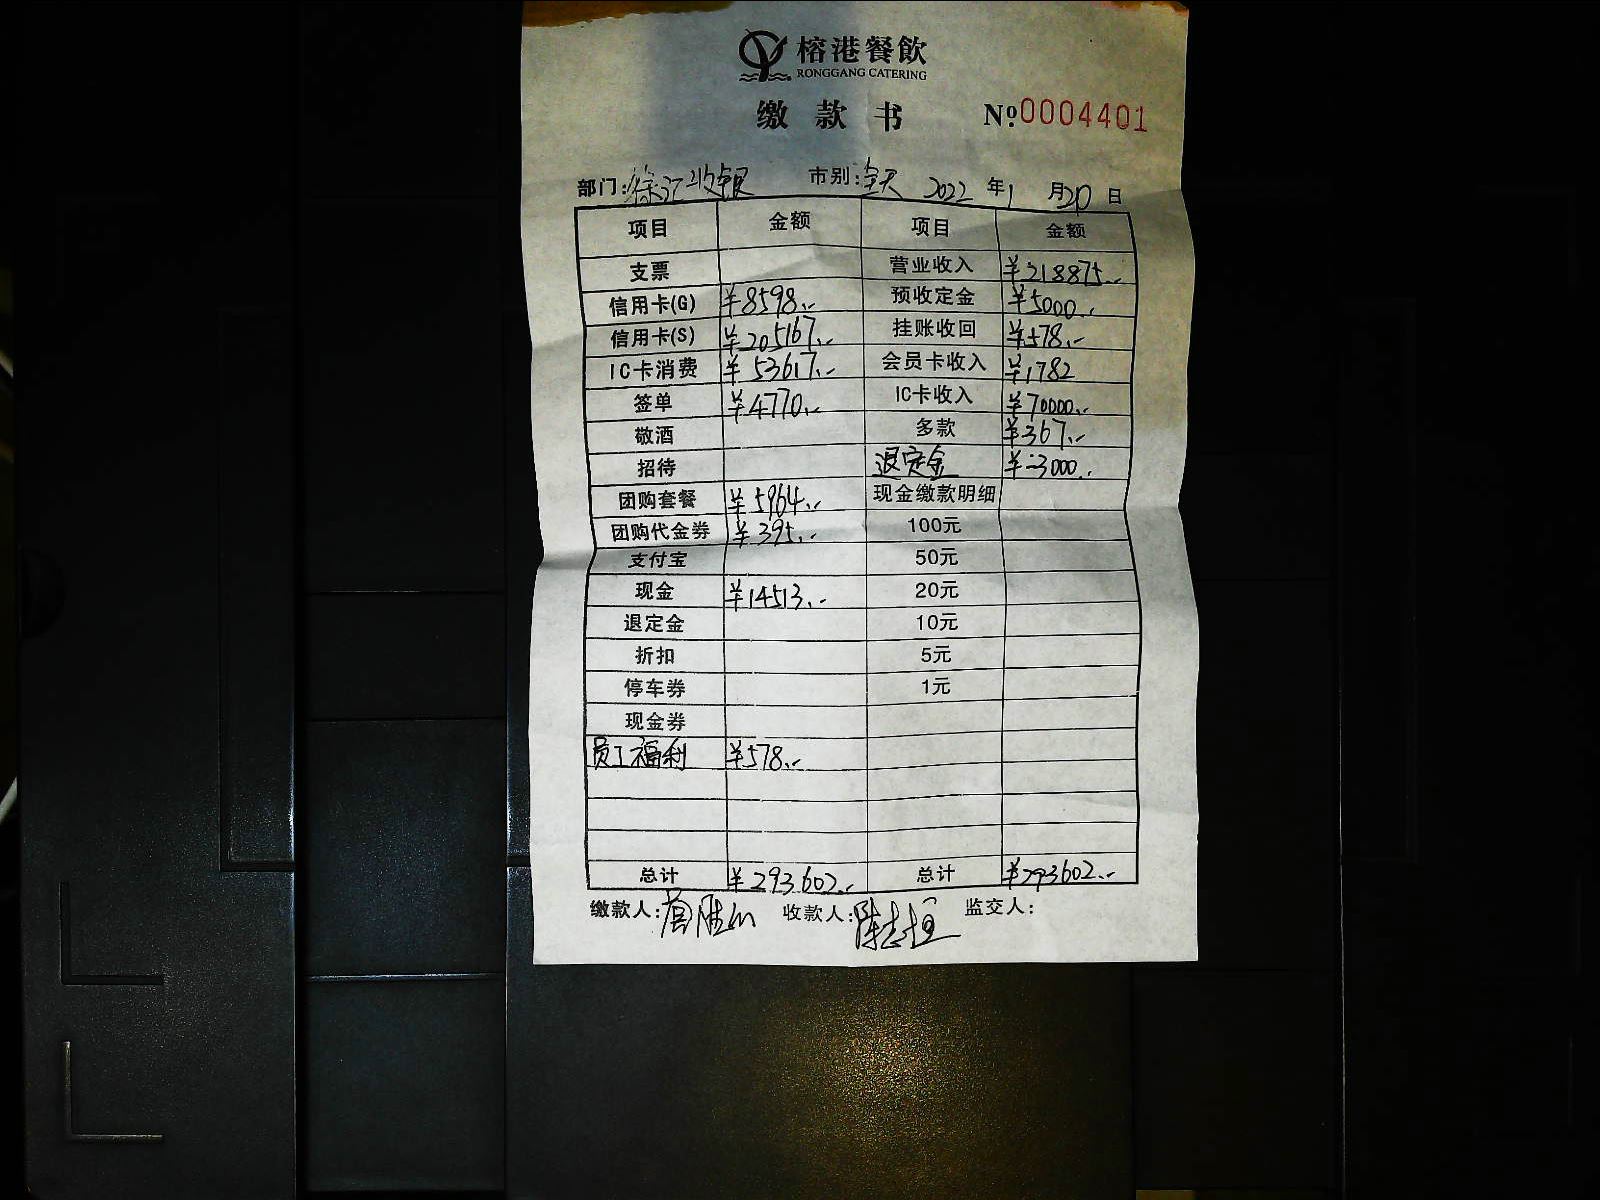 榕港餐飲
RONGGANG CATERING
缴款书 №0004401
部门:徐记收银 市别:全天 2022年1月20日
项目 金额 项目 金额
支票 营业收入 ¥218875.-
信用卡(G) ¥8598.- 预收定金 ¥5000.-
信用卡(S) ¥205167.- 挂账收回 ¥578.-
IC卡消费 ¥53617.- 会员卡收入 ¥1782
签单 ¥4770.- IC卡收入 ¥70000.-
敬酒 多款 ¥367.-
招待 退定金 ¥-3000.-
团购套餐 ¥5964.- 现金缴款明细
团购代金券 ¥395.- 100元
支付宝 50元
现金 ¥14513.- 20元
退定金 10元
折扣 5元
停车券 1元
现金券
员工福利 ¥578.-
总计 ¥293602.- 总计 ¥293602.-
缴款人: 收款人:陈志恒 监交人: